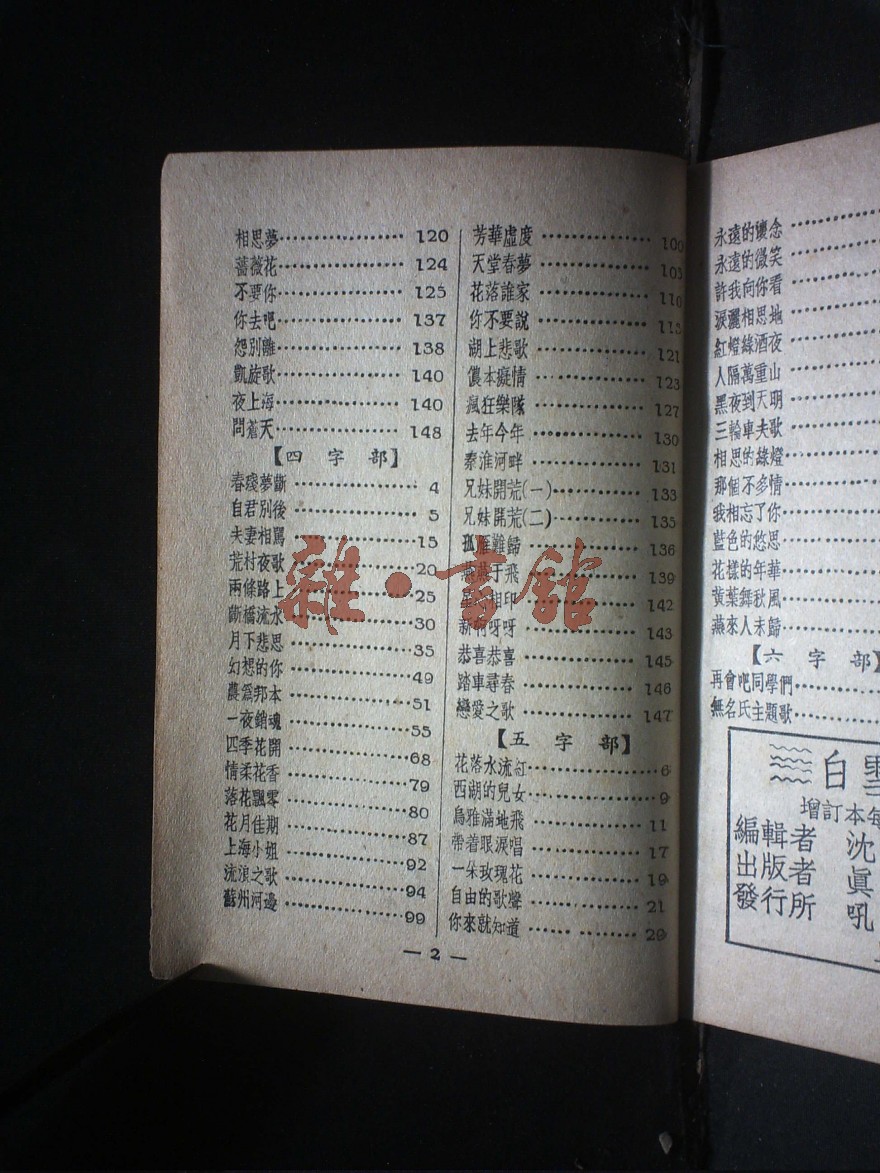 相思夢 120
薔薇花 124
不要你 125
你去吧 137
怨別離 138
凱旋歌 140
夜上海 140
問蒼天 148
【四字部】
春殘夢斷 4
自君別後 5
夫妻相罵 15
荒村夜歌 20
兩條路上 25
斷橋流水 30
月下悲思 35
幻想的你 49
農為邦本 51
一夜銷魂 55
四季花開 68
情柔花香 79
落花飄零 80
花月佳期 87
上海小姐 92
流浪之歌 94
蘇州河邊 99
芳華虛度 100
天堂春夢 103
花落誰家 110
你不要說 113
湖上悲歌 121
儂本癡情 123
瘋狂樂隊 127
去年今年 130
秦淮河畔 131
兄妹開荒(一) 133
兄妹開荒(二) 135
孤雁難歸 136
燕燕于飛 139
相印 142
呀呀 143
恭喜恭喜 145
踏車尋春 146
戀愛之歌 147
【五字部】
花落水流紅 6
西湖的兒女 9
烏鴉滿地飛 11
帶着眼淚唱 17
一朵玫瑰花 19
自由的歌聲 21
你來就知道 29
— 2 —
永遠的懷念
永遠的微笑
許我向你看
淚灑相思地
紅燈綠酒夜
人隔萬重山
黑夜到天明
三輪車夫歌
相思的綠燈
那個不多情
我相忘了你
藍色的悠思
花樣的年華
黃葉舞秋風
燕來人未歸
【六字部】
再會吧同學們
無名氏主題歌
白雪
增訂本每
編輯者 沈
出版者 眞
發行所 吼
雜·書館